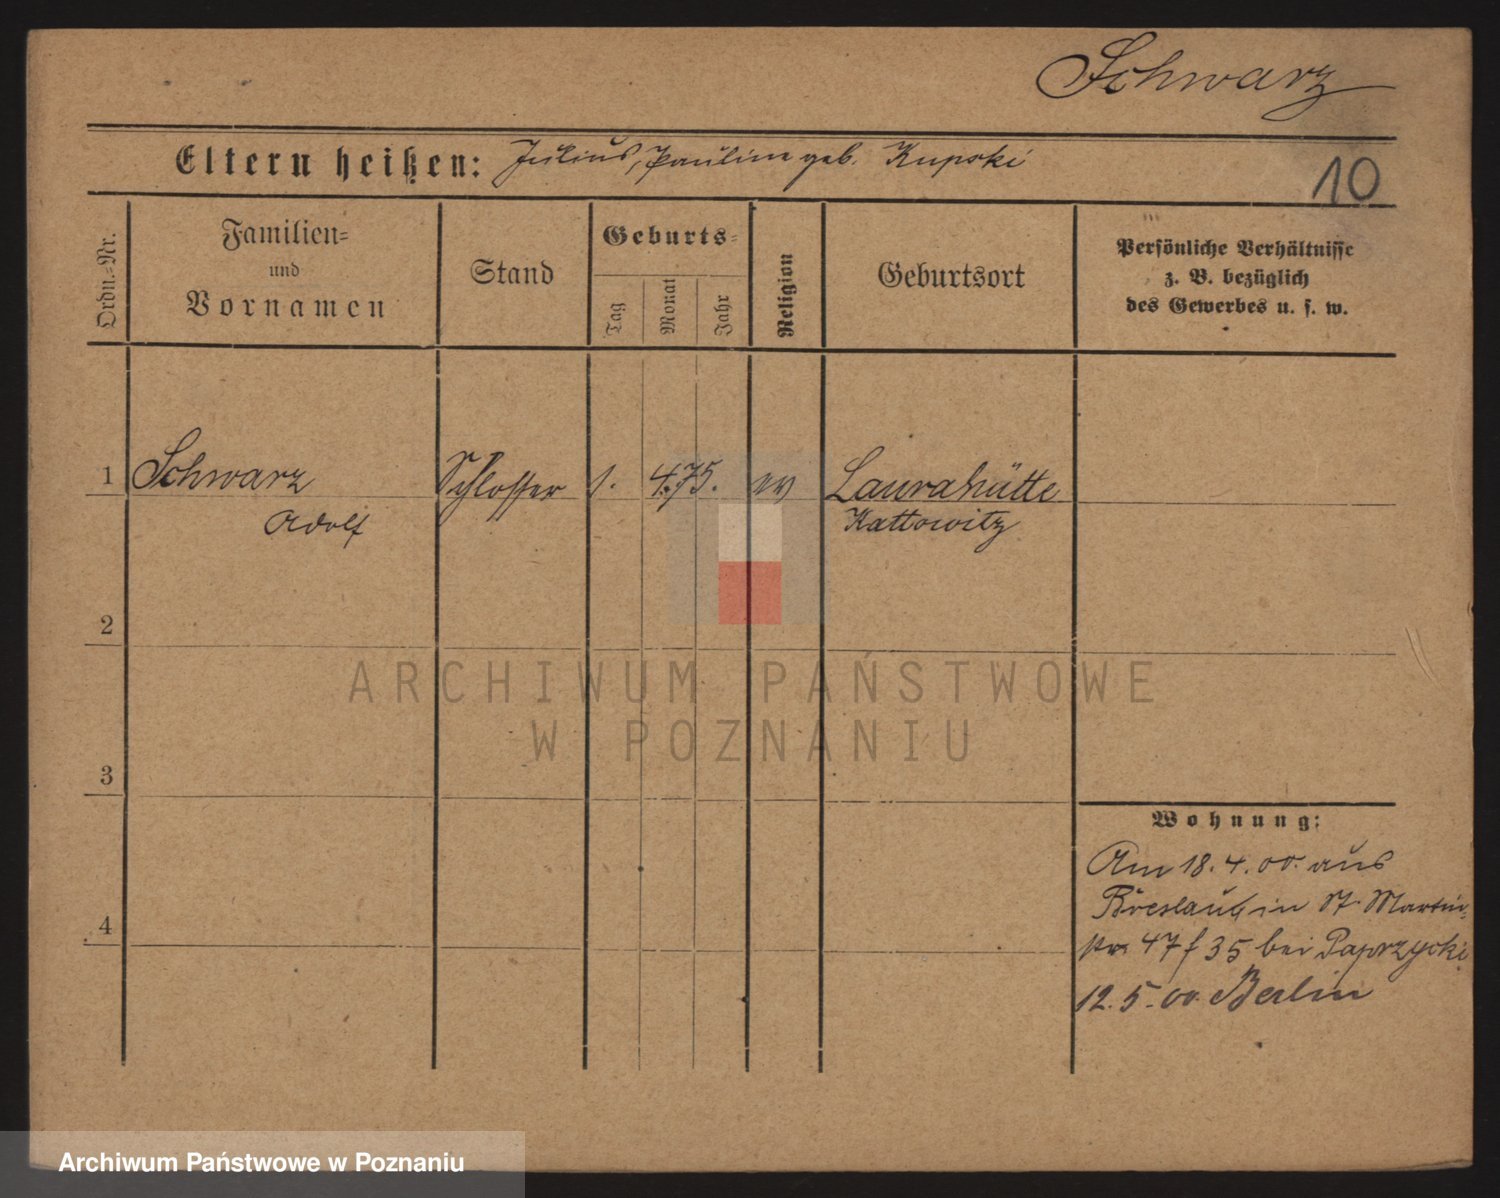 Schwarz
Eltern heißen: Julius, Pauline geb. Kupski
10
Ordn.-Nr.
Familien-
und
Vornamen
Stand
Geburts-
Tag
Monat
Jahr
Religion
Geburtsort
Persönliche Verhältnisse
z. B. bezüglich
des Gewerbes u. s. w.
1 Schwarz Schlosser 1. 4. 75. ev Laurahütte
Adolf Kattowitz
2
ARCHIWUM PAŃSTWOWE
W POZNANIU
3
Wohnung:
Am 18. 4. 00. aus
Breslau in St. Martin-
4
str 47 f 35 bei Paprzycki
12. 5. 00 Berlin
Archiwum Państwowe w Poznaniu